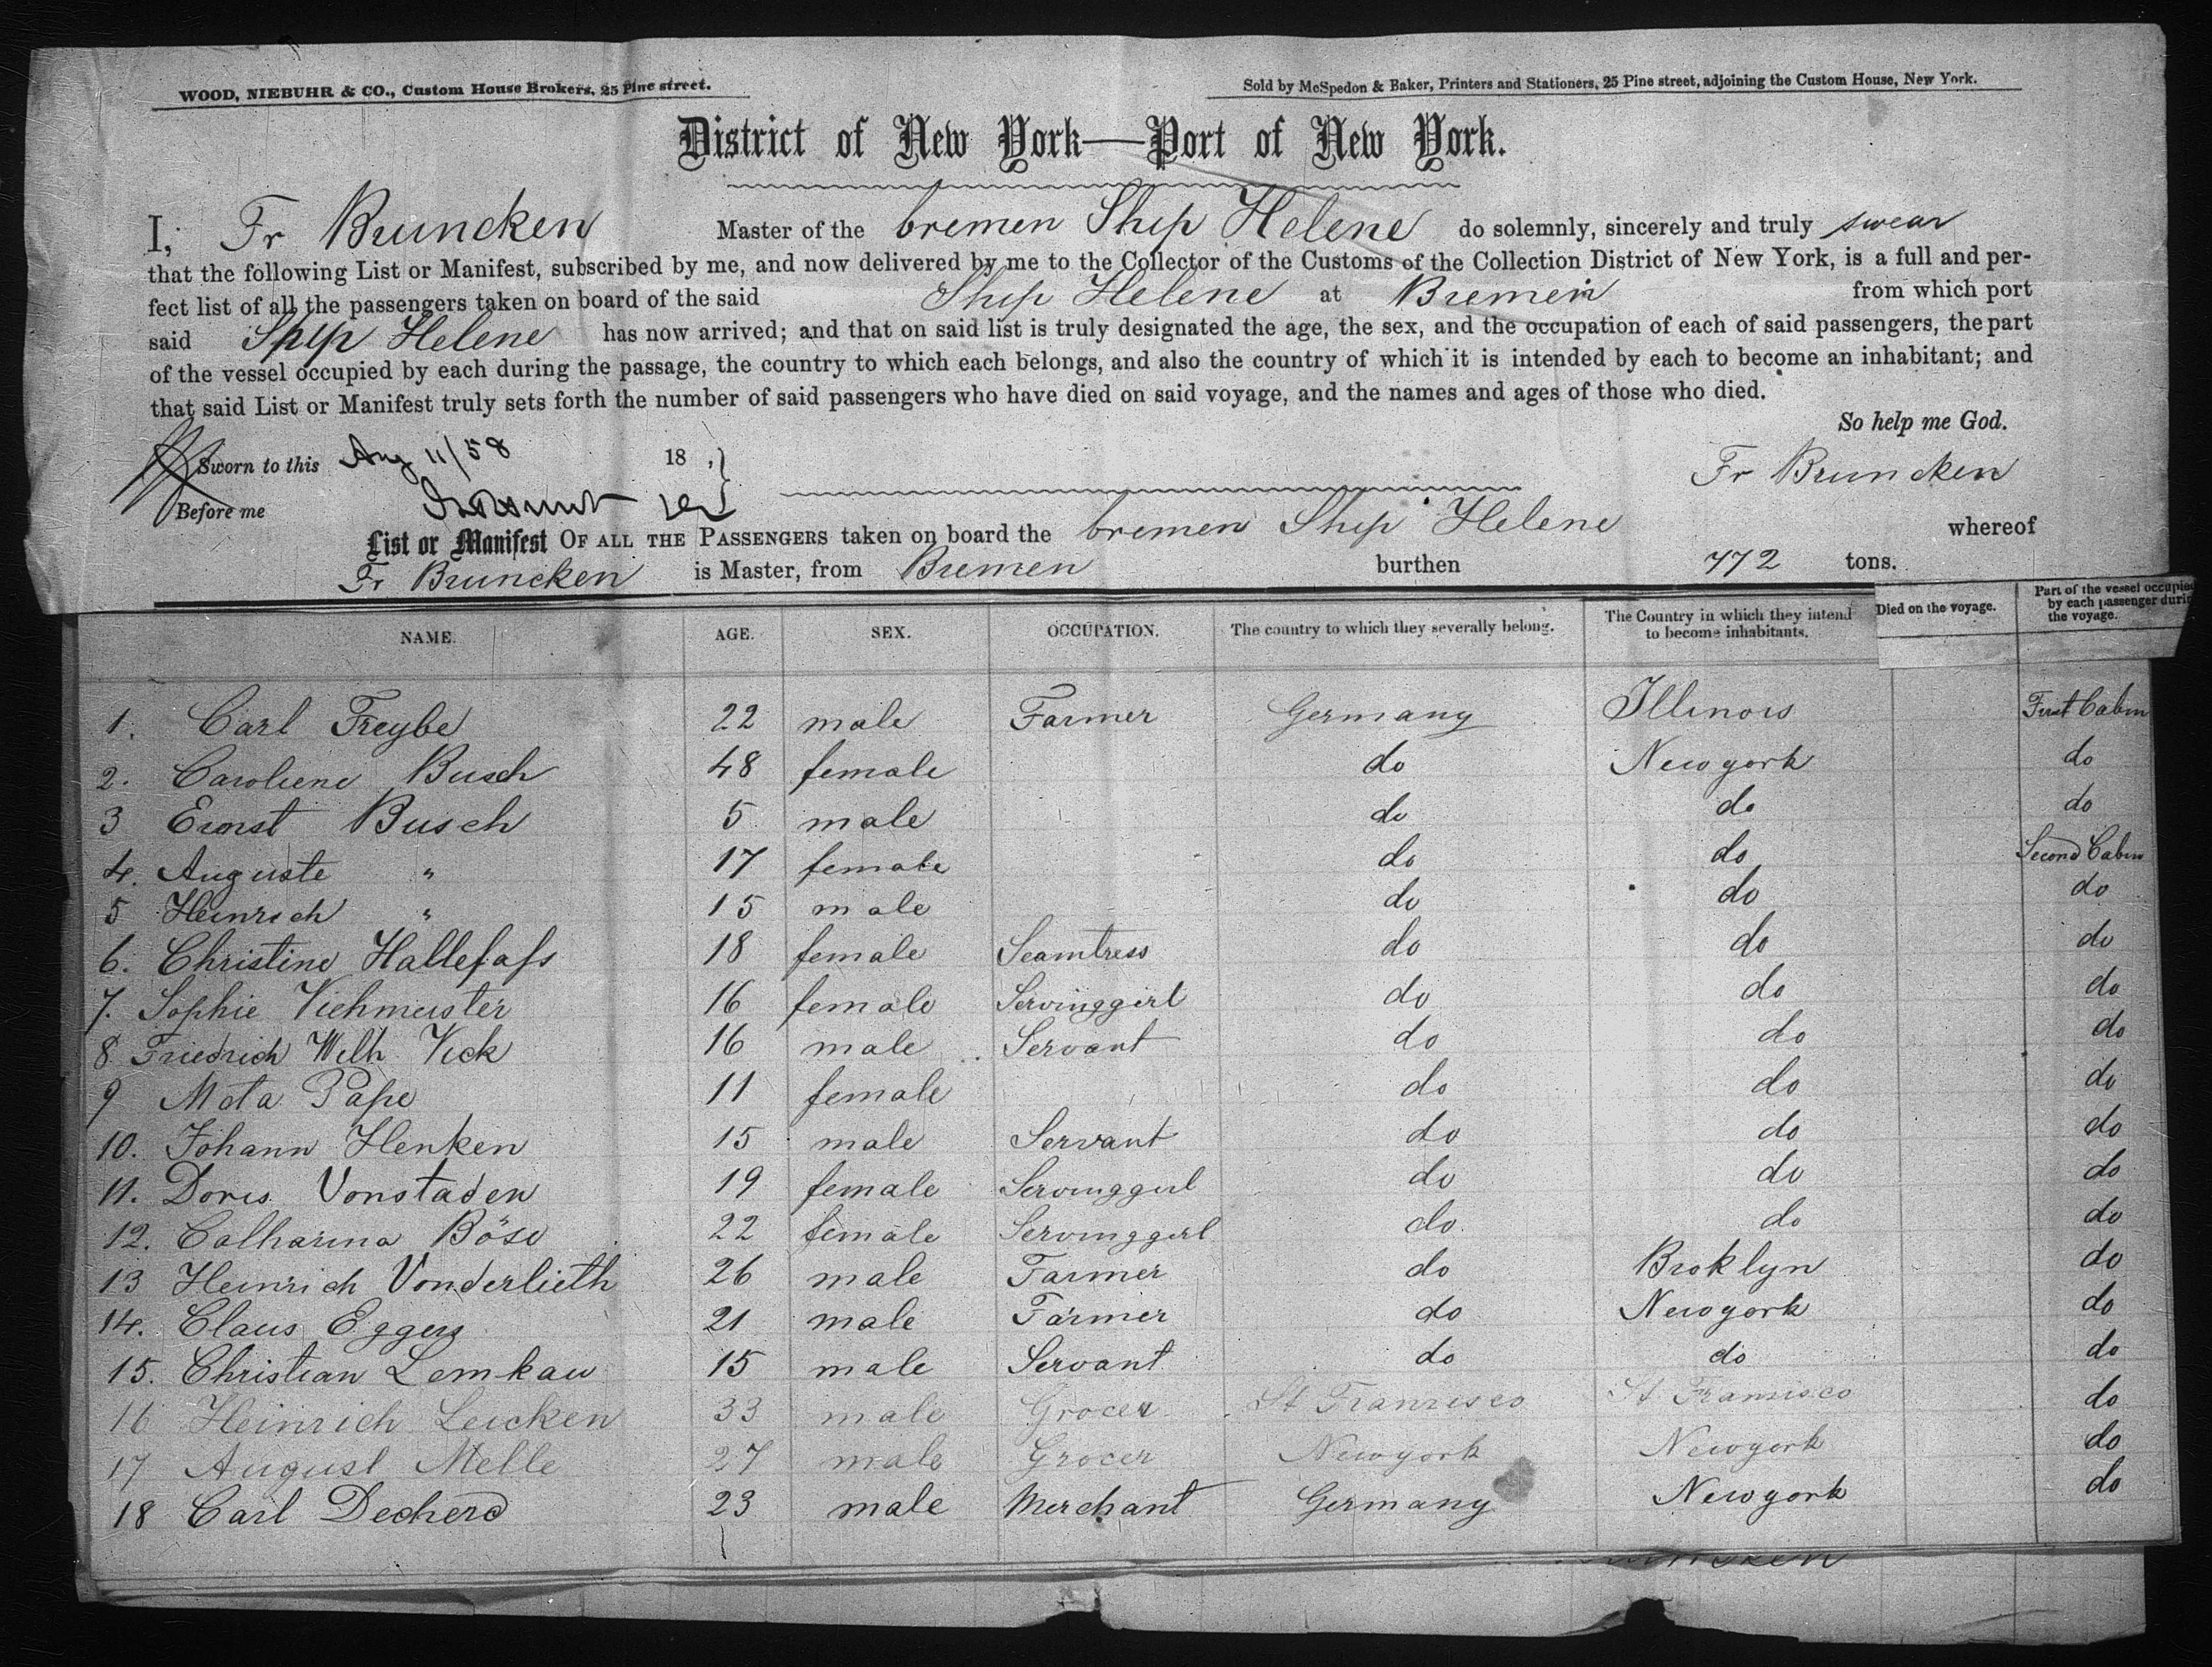 WOOD, NIEBUHR & CO., Custom House Brokers, 25 Pine street.
Sold by McSpedon & Baker, Printers and Stationers, 25 Pine street, adjoining the Custom House, New York.
District of New York—Port of New York.
I, Fr Bruncken Master of the bremen Ship Helene do solemnly, sincerely and truly swear
that the following List or Manifest, subscribed by me, and now delivered by me to the Collector of the Customs of the Collection District of New York, is a full and per-
fect list of all the passengers taken on board of the said Ship Helene at Bremen from which port
said Ship Helene has now arrived; and that on said list is truly designated the age, the sex, and the occupation of each of said passengers, the part
of the vessel occupied by each during the passage, the country to which each belongs, and also the country of which it is intended by each to become an inhabitant; and
that said List or Manifest truly sets forth the number of said passengers who have died on said voyage, and the names and ages of those who died.
So help me God.
Sworn to this Aug 11/58 18 ,}
Fr Bruncken
Before me
List or Manifest OF ALL THE PASSENGERS taken on board the bremen Ship Helene whereof
Fr Bruncken is Master, from Bremen burthen 772 tons.
NAME. AGE. SEX. OCCUPATION. The country to which they severally belong. The Country in which they intend to become inhabitants. Died on the voyage. Part of the vessel occupied by each passenger during the voyage.
1. Carl Freybe 22 male Farmer Germany Illinois First Cabin
2. Caroliene Busch 48 female do Newyork do
3 Ernst Busch 5 male do do do
4. Auguste " 17 female do do Second Cabin
5 Heinrich " 15 male do do do
6. Christine Hallefaſs 18 female Seamtress do do do
7. Sophie Viehmeister 16 female Servinggirl do do do
8 Friedrich Wilh. Vick 16 male Servant do do do
9 Meta Pape 11 female do do do
10. Johann Henken 15 male Servant do do do
11. Doris Vonstaden 19 female Servinggirl do do do
12. Catharina Böse 22 female Servinggirl do do do
13 Heinrich Vonderlieth 26 male Farmer do Broklyn do
14. Claus Eggers 21 male Farmer do Newyork do
15. Christian Lemkau 15 male Servant do do do
16 Heinrich Leicken 33 male Grocer St Francisco St Francisco do
17 August Melle 27 male Grocer Newyork Newyork do
18 Carl Decherd 23 male Merchant Germany Newyork do